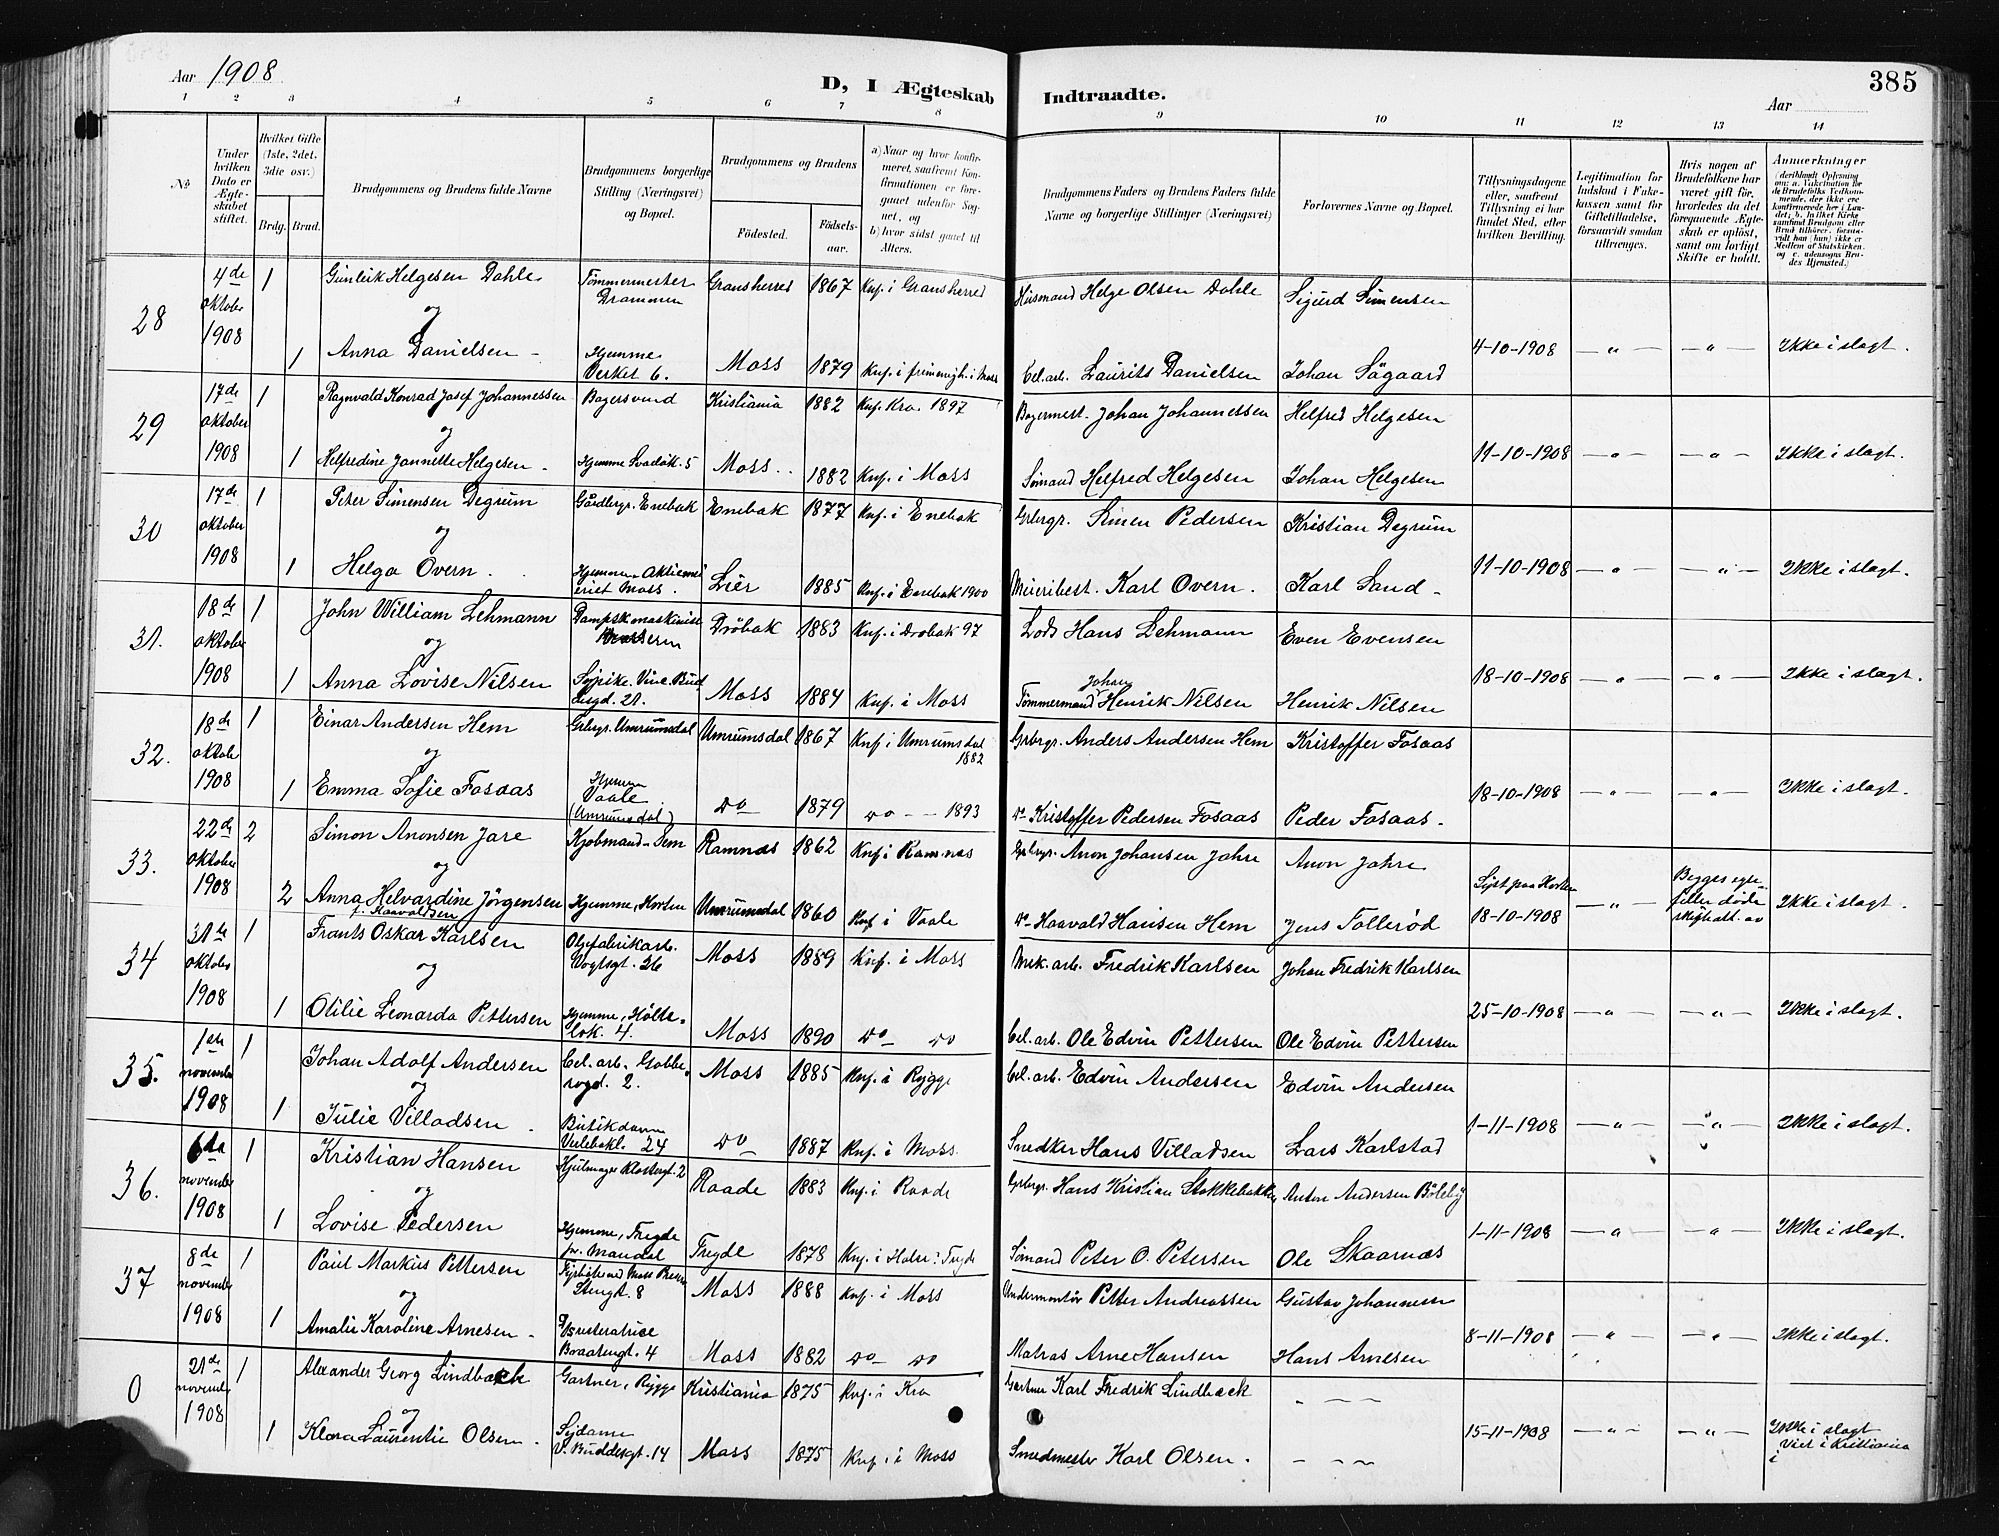 Aar 1908
D, I Ægteskab Indtraadte.
385
Aar
1 2 3 4 5 6 7 8 9 10 11 12 13 14
No
Under hvilken Dato er Ægteskabet stiftet.
Hvilket Gifte (1ste, 2det, 3die osv.)
Brdg. Brud.
Brudgommens og Brudens fulde Navne
Brudgommens borgerlige Stilling (Næringsvei) og Bopæl.
Brudgommens og Brudens
Födested.
Födsels-aar.
a) Naar og hvor konfirmeret, saafremt Konfirmationen er foregaaet udenfor Sognet, og
b) hvor sidst gaaet til Alters.
Brudgommens Faders og Brudens Faders fulde Navne og borgerlige Stillinger (Næringsvei)
Forlovernes Navne og Bopæl.
Tillysningsdagene eller, saafremt Tillysning ei har fundet Sted, efter hvilken Bevilling.
Legitimation for Indskud i Fakekassen samt for Giftetilladelse, forsaavidt saadan tiltrænges.
Hvis nogen af Brudefolkene har været gift för, hvorledes da det foregaaende Ægteskab er oplöst, samt om lovligt Skifte er holdt.
Anmærkninger
28 4de oktober 1908 1 Gunleik Helgesen Dahle Tömmermester Drammen Gransherred 1867 Knf. i Gransherred Husmand Helge Olsen Dahle Sigurd Simensen
og
1 Anna Danielsen Hjemme Verket 6. Moss 1879 Knf. i frimenigh. i Moss Cel. arb. Laurits Danielsen Johan Sögaard 4-10-1908 — „ — — „ — Ikke i slagt.
29 17de oktober 1908 1 Ragnvald Konrad Josef Johannessen Bagersvend Kristiania 1882 Knf. Kra. 1897 Bagermest. Johan Johannessen Helfred Helgesen
og
1 Helfredine Jannette Helgesen Hjemme 5 Moss 1882 Knf. i Moss Sömand Helfred Helgesen Johan Helgesen 11-10-1908 — „ — — „ — Ikke i slagt.
30 17de oktober 1908 1 Peter Simensen Degrum Gårdbrgr. Enebak Enebak 1877 Knf. i Enebak Grbrgr. Simen Pedersen Kristian Degrum
og
1 Helga Overn Hjemme Moss Lier 1885 Knf. i Enebak 1900 Meieribest. Karl Overn Karl Sand 11-10-1908 — „ — — „ — Ikke i slagt.
31. 18de oktober 1908 1 John William Lehmann Dampsk. maskinist Dröbak 1883 Knf. i Dröbak 97 Lods Hans Lehmann Even Evensen
og
1 Anna Lovise Nilsen Moss 1884 Knf. i Moss Tömmermand Johan Henrik Nilsen Henrik Nilsen 18-10-1908 — „ — — „ — Ikke i slagt.
32. 18de oktober 1908 1 Einar Andersen Hem Grbrgr. Umrumsdal Umrumsdal 1867 Knf i Umrumsdal 1882 Grbrgr. Anders Andersen Hem Kristoffer Fosaas
og
1 Emma Sofie Fosaas Hjemme Vaale (Umrumsdal) do 1879 do - - 1893 do Kristoffer Pedersen Fosaas Peder Fosaas. 18-10-1908 — „ — — „ — Ikke i slagt.
33. 22de oktober 1908 2 Simon Anonsen Jare Kjöbmand, Sem Ramnæs 1862 Knf i Ramnæs Grbrgr. Anon Johansen Jahre Anon Jahre
og
2 Anna Helvardine Jörgensen f. Haavaldsen Hjemme, Horten Umrumsdal 1860 Knf i Vaale do Haavald Hansen Hem Jens Tollerød Lyst paa Horten 18-10-1908 — „ — Begges egtefeller döde skifteatt. av Ikke i slagt.
34 31te oktober 1908 1 Frants Oskar Karlsen Oljefabrikarb. Vogtsgt. 26 Moss 1889 knf. i Moss Mek. arb. Fredrik Karlsen Johan Fredrik Karlsen
og
1 Otilie Leonarda Pettersen Hjemme, 4. Moss 1890 do do Cel. arb. Ole Edvin Pettersen Ole Edvin Pettersen 25-10-1908 — „ — — „ — Ikke i slagt.
35. 1ste november 1908 1 Johan Adolf Andersen Cel. arb. 2. Moss 1885 Knf. i Rygge Cel. arb. Edvin Andersen Edvin Andersen
og
1 Julie Villadsen Butikdame 24 do 1887 Knf. i Moss Smedker Hans Villadsen Lars Karlstad 1-11-1908 — „ — — „ — Ikke i slagt.
36. 6te november 1908 1 Kristian Hansen Hjulmager Klostergt. 2 Raade 1883 Knf. i Raade Grbrgr. Hans Kristian Stokkebakken Anton Andersen Böleby
og
1 Lovise Pedersen Hjemme, Tregde pr. Mandal Tregde 1878 Knf. i Halse i Tregde Sømand Peter O. Petersen Ole Skaarnæs 1-11-1908 — „ — — „ — Ikke i slagt.
37 8de november 1908 1 Paul Markus Pettersen Fyrböter ved Moss Stengt. 8 Moss 1888 Knf. i Moss Undermontör Petter Andreassen Gustav Johannesen
og
1 Amalie Karoline Arnesen Braatengt. 4 Moss 1882 do do Matros Arne Hansen Hans Arnesen 8-11-1908 — „ — — „ — Ikke i slagt.
0 21de november 1908 1 Alexander Georg Lindbæck Gartner, Rygge Kristiania 1875 Knf. i Kra Gartner Karl Fredrik Lindbæck
og
1 Klara Laurentie Olsen Sydame V. Buddesgt. 14 Moss 1875 Knf. i Moss Smedmester Karl Olsen. 15-11-1908 — „ — — „ — Ikke i slagt Viet i Kristiania